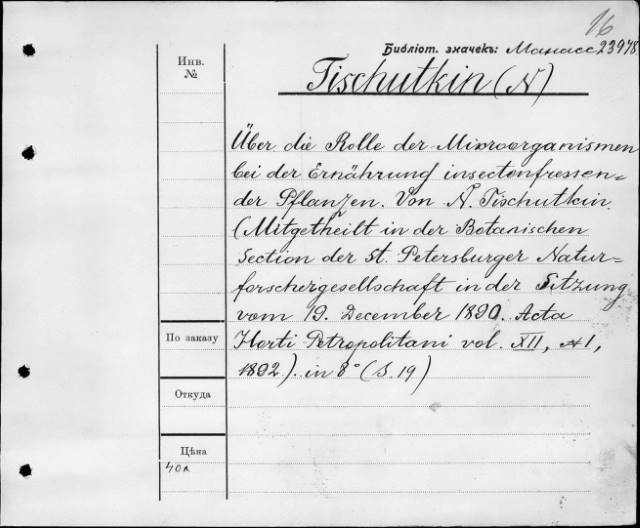 16
Библіот. значекъ: Манасс 23978
Инв.
№
Tischutkin (N)
Über die Rolle der Microorganismen
bei der Ernährung insectenfressen=
der Pflanzen. Von N. Tischutkin.
(Mitgetheilt in der Botanischen
Section der St. Petersburger Natur-
forschergesellschaft in der Sitzung
vom 19. December 1890. Acta
Horti Petropolitani vol. XII, №1,
1892). in 8° (S. 19)
По заказу
Откуда
Цѣна
40к